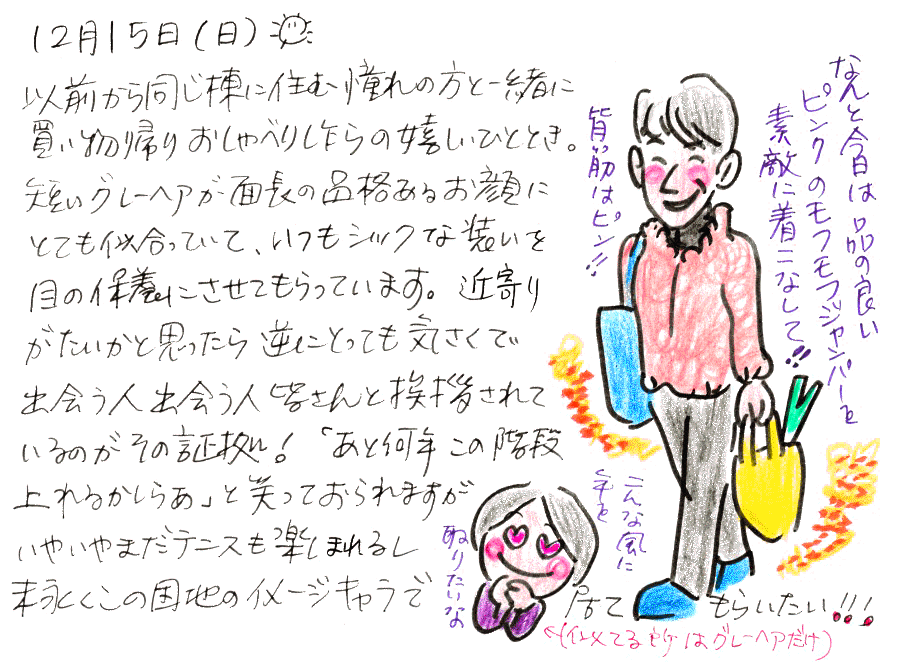 12月15日(日)
以前から同じ棟に住む憧れの方と一緒に
買い物帰りおしゃべりし乍らの嬉しいひととき。
短いグレーヘアが面長の品格あるお顔に
とても似合っていて、いつもシックな装いを
目の保養にさせてもらっています。近寄り
がたいかと思ったら逆にとっても気さくで
出会う人出会う人皆さんと挨拶されて
いるのがその証拠!「あと何年この階段
上れるかしらあ」と笑っておられますが
いやいやまだテニスも楽しまれるし
末永くこの団地のイメージキャラで
居てもらいたい!!!
なんと今日は品の良い
ピンクのモフモフジャンパーを
素敵に着こなして!!
背筋はピン!!
こんな風に
年を
取りたいな
(似てる所はグレーヘアだけ)